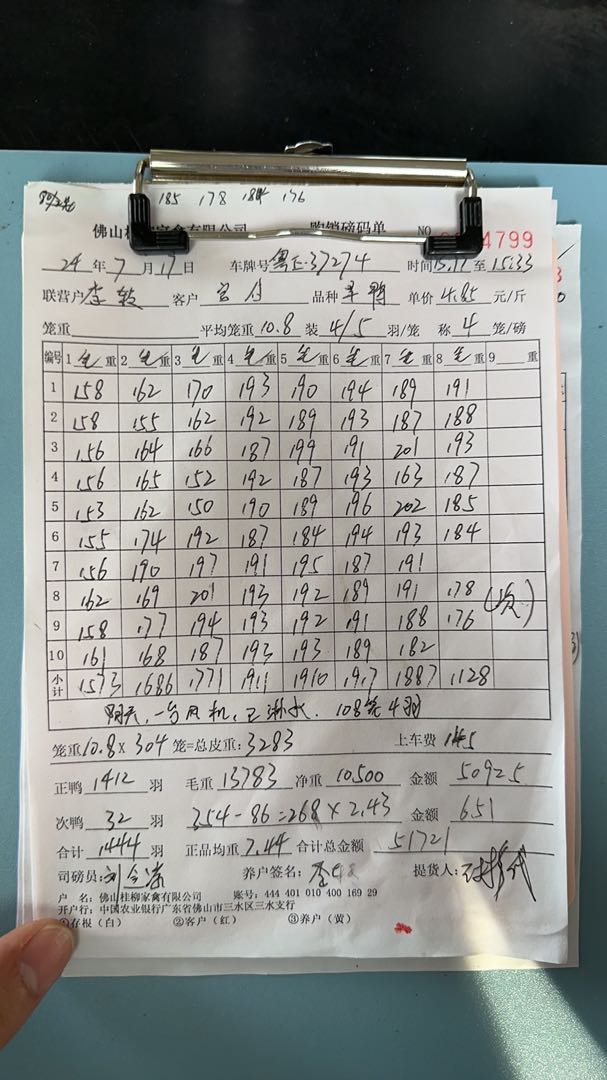 185 178 184 176
佛山桂柳家禽有限公司 购销磅码单 NO 4799
24年7月17日 车牌号粤E·37274 时间15:17至15:33
联营户李 客户 品种 鸭 单价4.85元/斤
笼重 平均笼重10.8 装4/5羽/笼 称4笼/磅
编号 1毛重 2毛重 3毛重 4毛重 5毛重 6毛重 7毛重 8毛重 9 重
1 158 162 170 193 190 194 189 191
2 158 155 162 192 189 193 187 188
3 156 164 166 187 199 191 201 193
4 156 165 152 192 187 193 163 187
5 153 162 150 190 189 196 202 185
6 155 174 192 187 184 194 193 184
7 156 190 197 191 195 187 191
8 162 169 201 193 192 189 191 178 (次)
9 158 177 194 193 192 191 188 176
10 161 168 187 193 193 189 182
小计 1573 1686 1771 1911 1910 1917 1887 1128
阴天,一台风机,已淋水. 108笼4羽
笼重10.8×304笼=总皮重:3283 上车费145
正鸭1412羽 毛重13783 净重10500 金额50925
次鸭32羽 354-86=268×2.43 金额651
合计1444羽 正品均重7.44 合计总金额51721
司磅员:刘 养户签名:李 提货人:
户 名:佛山桂柳家禽有限公司 账号:444 401 010 400 169 29
开户行:中国农业银行广东省佛山市三水区三水支行
①存根(白) ②客户(红) ③养户(黄)